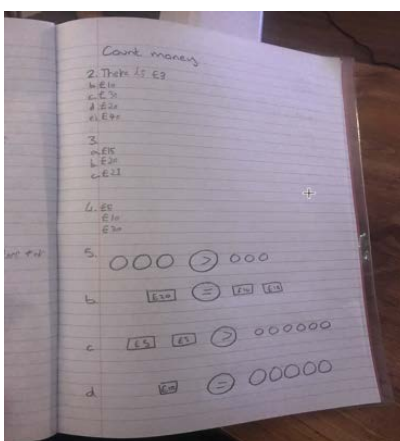 Count money
2. There is £8
b £10
c £30
d £20
e £40
3.
a £15
b £20
c £21
4. £5
£10
£20
5. >
b £20 = £10 £10
c £5 £5 >
d £10 =